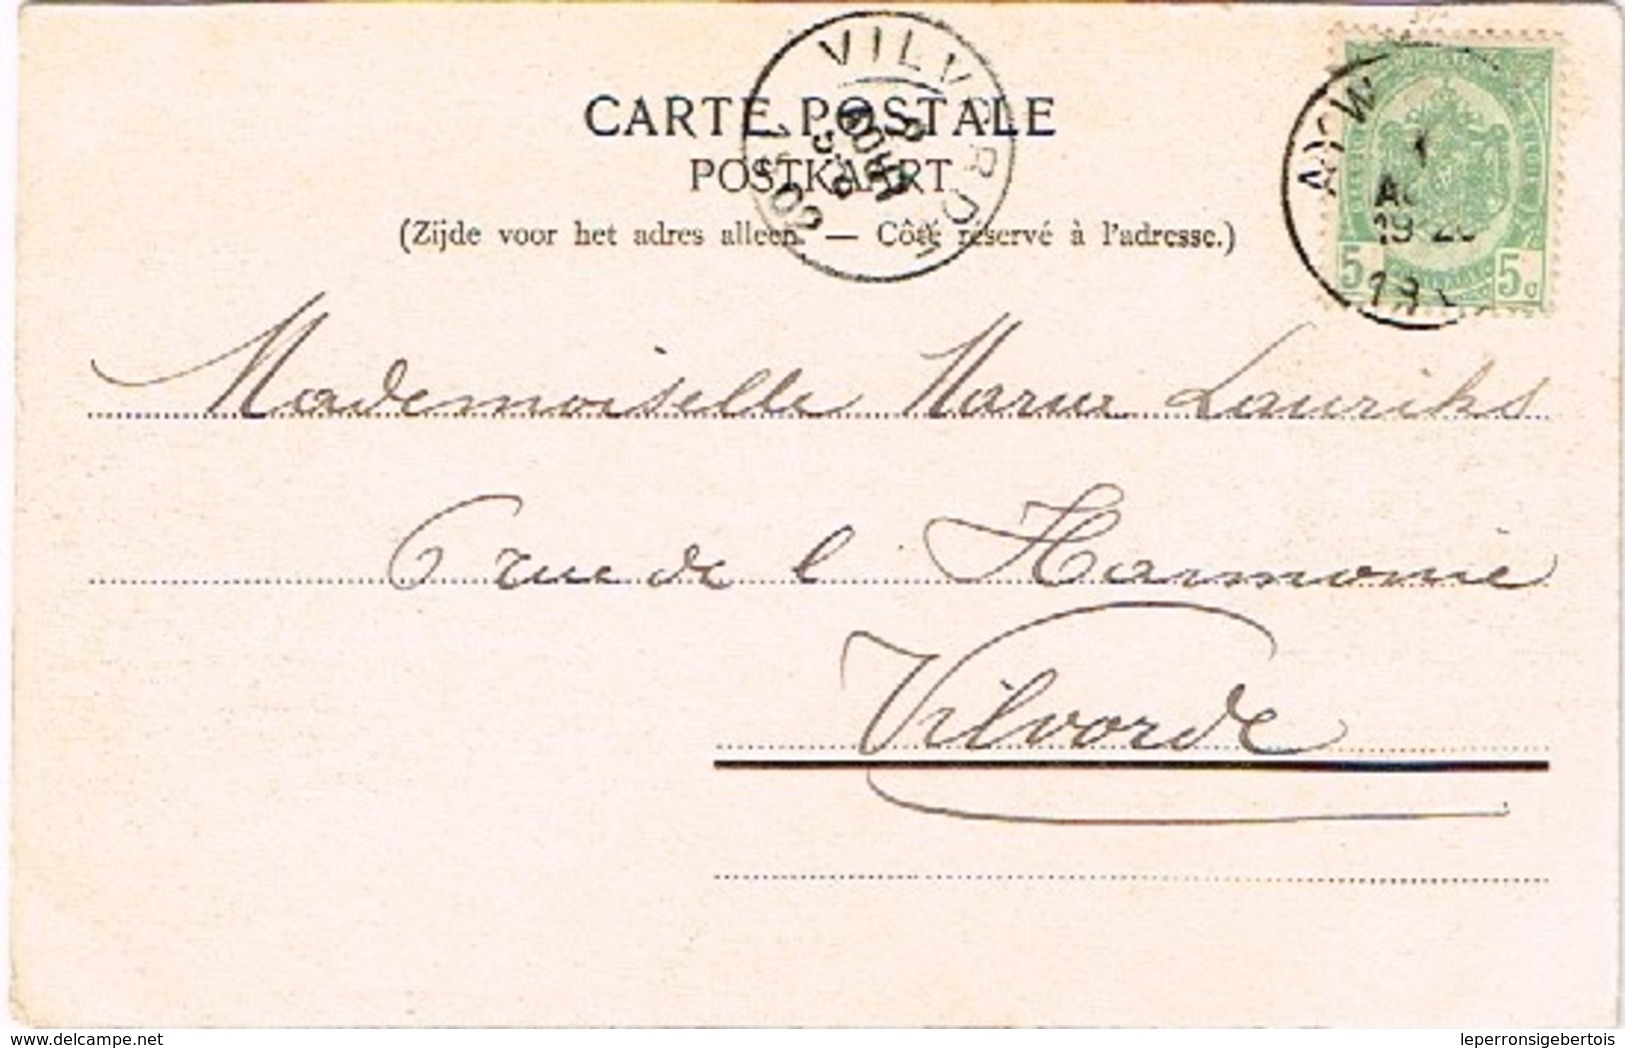 CARTE POSTALE
POSTKAART
(Zijde voor het adres alleen. — Côté réservé à l'adresse.)
VILVORDE
1902
5c 5c
Mademoiselle Marie Lauriks
6 rue de l Harmonie
Vilvorde
www.delcampe.net
leperronsigebertois